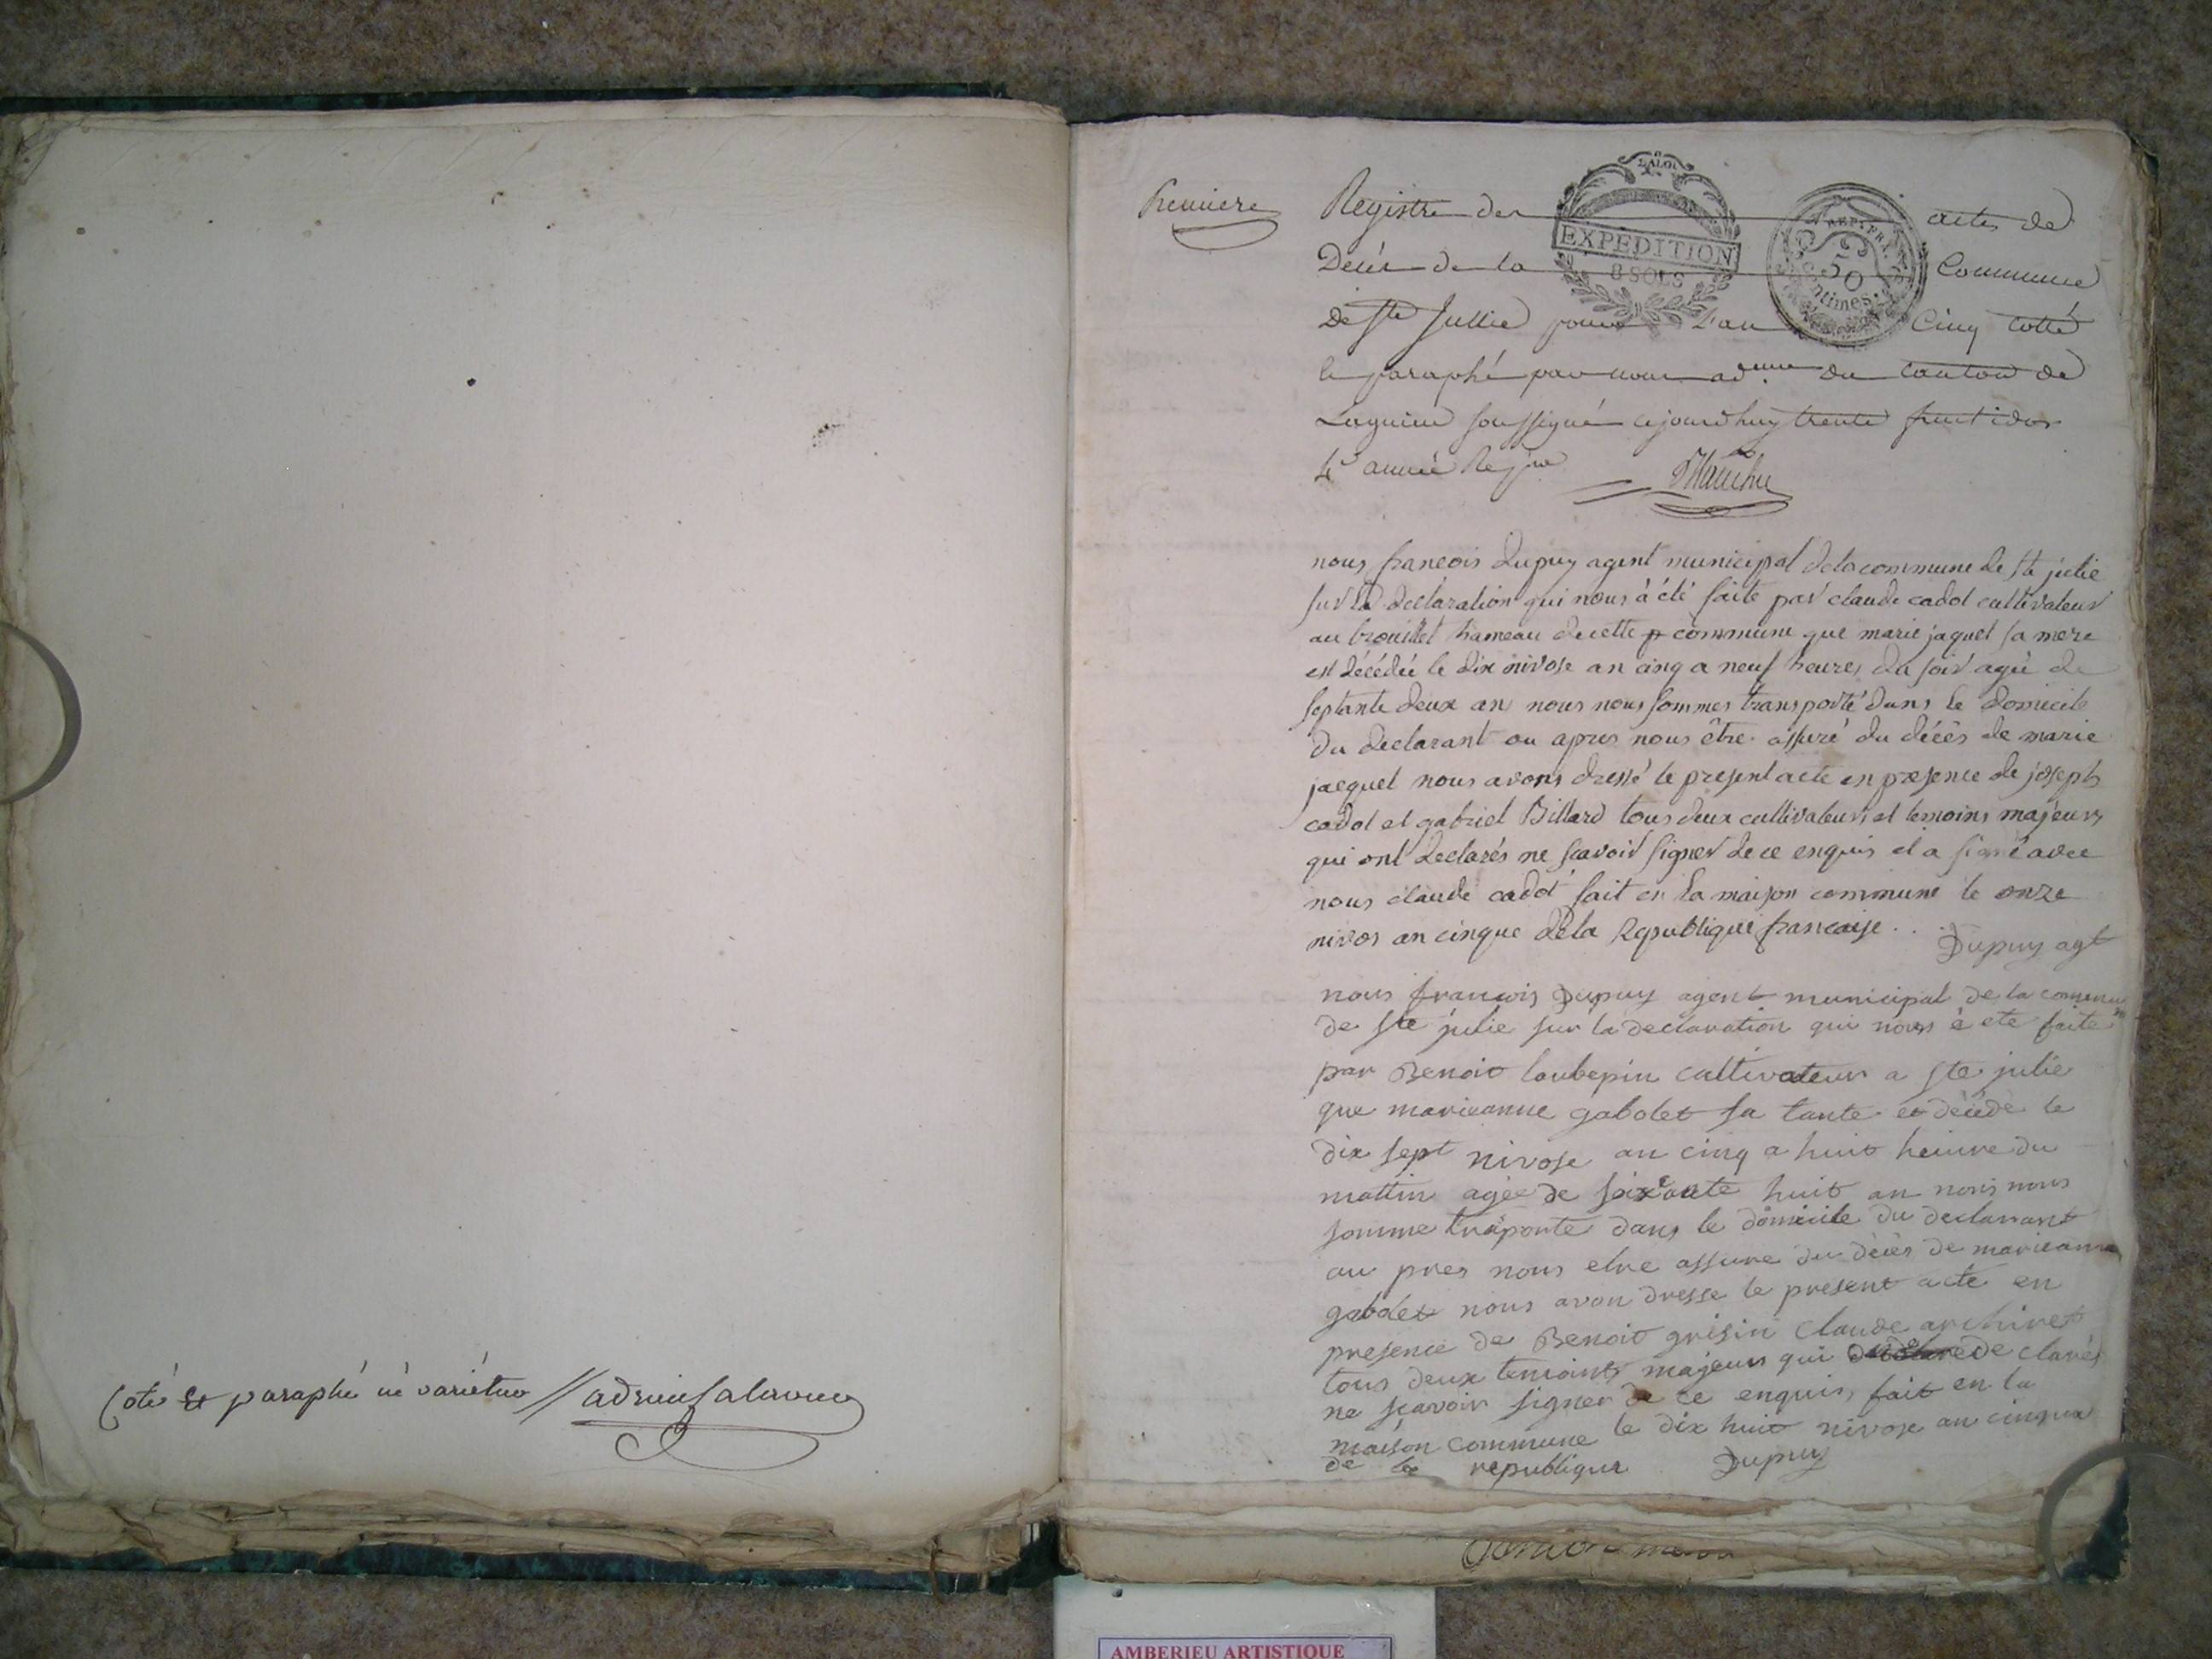 Coté et paraphé ne varietur
Premiere
Registre des actes de
Décès de la Commune
De Ste Jullie pour L'an Cinq cotté
LA LOI
EXPEDITION
8 SOLS
50
Centimes
le paraphé par nous adeur du canton de
Lagnieu soussigné cejourdhuy trente fructidor
4e année Repue
nous francois dupuy agent municipal dela commune de ste julie
sur la declaration qui nous à été faite par claude cadot cultivateur
au brouillet hameau decette commune que marie jaquet sa mere
est décédée le dix nivose an cinq a neuf heures du soir agée de
septante deux an nous nous sommes transporté dans le domicile
du declarant ou apres nous être assuré du décès de marie
jacquet nous avons dressé le present acte en presence de joseph
cadot et gabriel Billard tous deux cultivateurs et temoins majeurs
qui ont declarés ne scavoir signer de ce enquis et a signé avec
nous claude cadot fait en la maison commune le onze
nivos an cinque dela Republique francaise . . .
Dupuy agt
nous francois Dupuy agent municipal de la commune
de ste julie sur la declaration qui nous è ete faite
par Benoit loubepin cultivateur a ste julie
que marieanne gabolet sa tante et décéde le
dix sept nivose an cinq a huit heiure du
mattin agée de soixante huit an nous nous
somme traporte dans le domicile du declarant
au pres nous etre assure du décès de marieanne
gabolet nous avon dresse le present acte en
presence de Benoit grisin Claude archiret
tous deux temoins majeurs qui declarés
ne scavoir signer de ce enquis fait en la
maison commune le dix huit nivose an cinque
de la republique Dupuy
AMBERIEU ARTISTIQUE